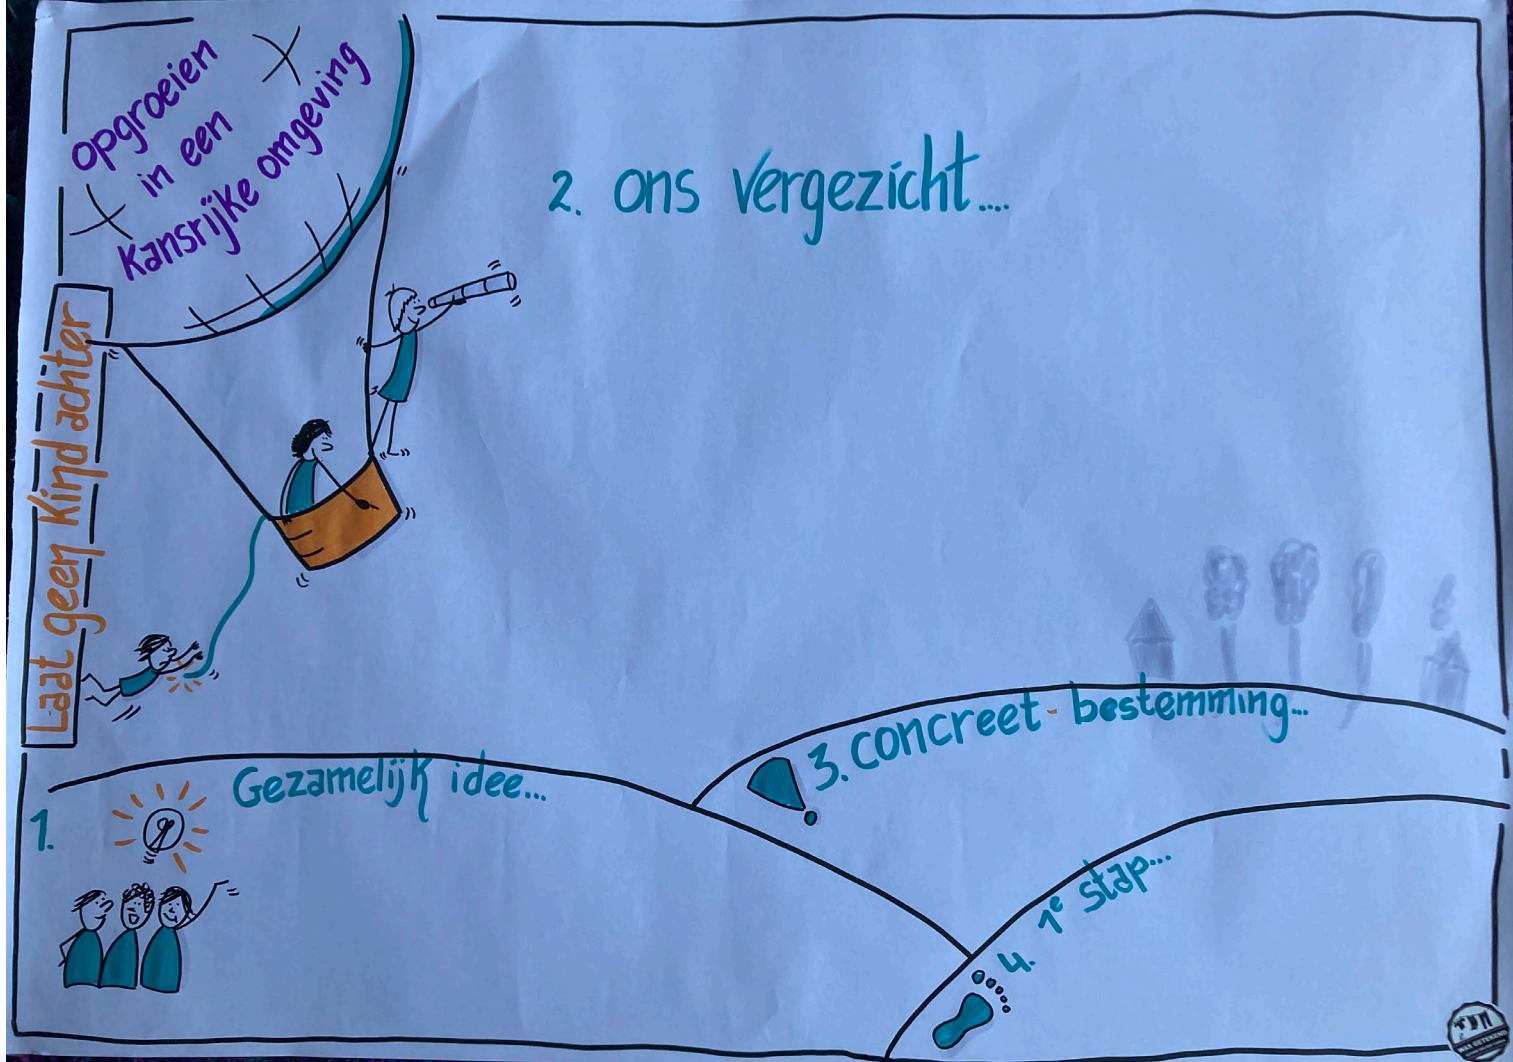 opgroeien
in een
kansrijke omgeving
Laat geen kind achter
2. ons vergezicht....
1.
Gezamelijk idee...
3. concreet-bestemming...
4. 1e stap...